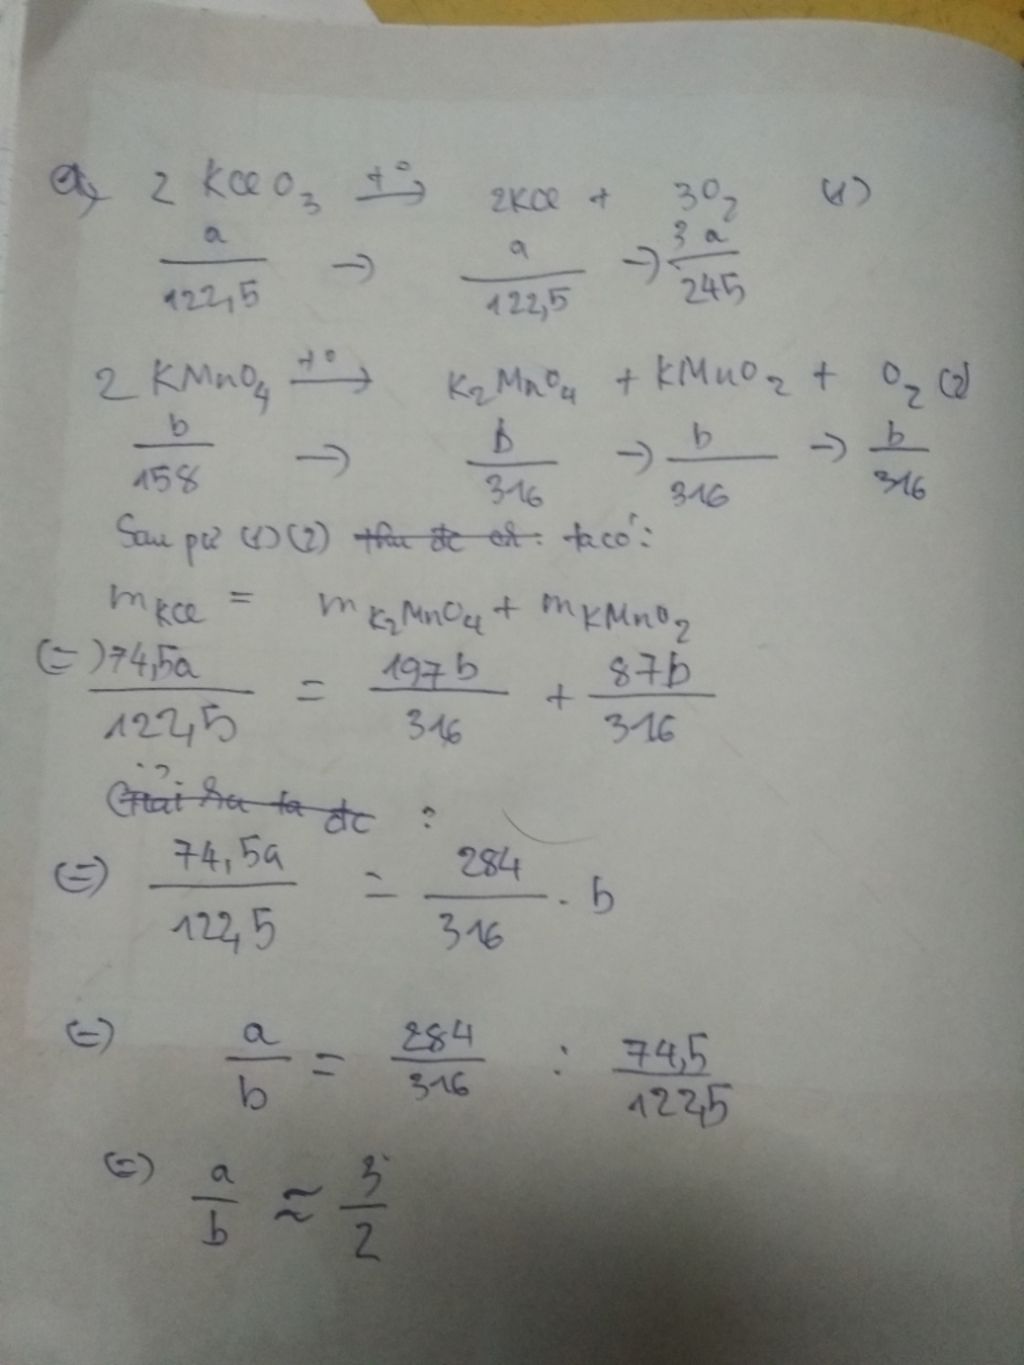 a, 2 KClO3 t° → 2KCl + 3O2 (1)
a/122,5 → a/122,5 → 3a/245
2 KMnO4 t° → K2MnO4 + KMnO2 + O2 (2)
b/158 → b/316 → b/316 → b/316
Sau pứ (1) (2) ta có:
mKCl = mK2MnO4 + mKMnO2
(=) 74,5a/122,5 = 197b/316 + 87b/316
:
(=) 74,5a/122,5 = 284/316 . b
(=) a/b = 284/316 : 74,5/122,5
(=) a/b ≈ 3/2